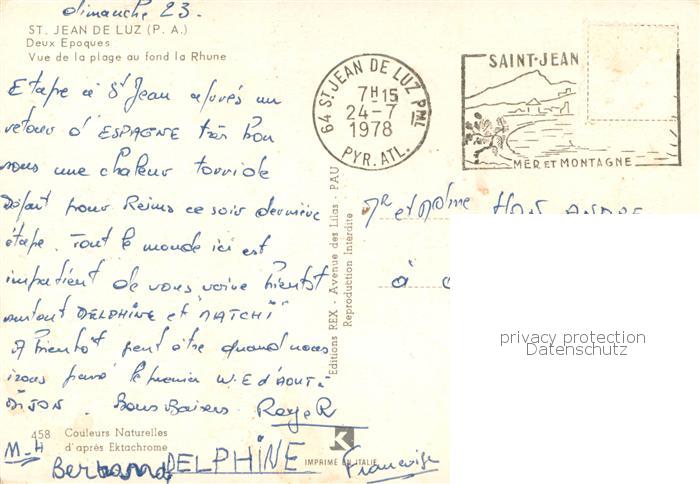 dimanche 23.
ST. JEAN DE LUZ (P. A.)
Deux Epoques
Vue de la plage au fond la Rhune
Etape à St Jean après un
retour d'ESPAGNE très bon
sous une chaleur torride
Départ pour Reims ce soir dernière
étape. Tout le monde ici est
impatient de vous voir bientôt
surtout DELPHINE et "MATCHI"
A bientôt peut être quand nous
irons pour le premier W.E d'AOUT à
DIJON. Bons Baisers RogeR
458 Couleurs Naturelles
d'après Ektachrome
M-H
Bertrand DELPHINE Françoise
IMPRIMÉ EN ITALIE
Editions REX - Avenue des Lilas - PAU
Reproduction Interdite
64 ST JEAN DE LUZ PPAL
7H15
24-7
1978
PYR. ATL.
SAINT-JEAN
MER ET MONTAGNE
Mr et Mme ANDRE
à
privacy protection
Datenschutz